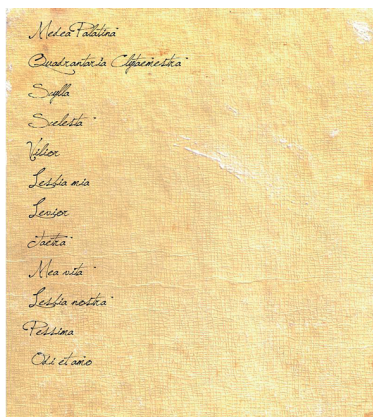 Medea Palatina
Quadrantaria Clytaemestra
Scylla
Scelesta
Vilior
Lesbia mia
Levior
Taetra
Mea vita
Lesbia nostra
Pessima
Odi et amo